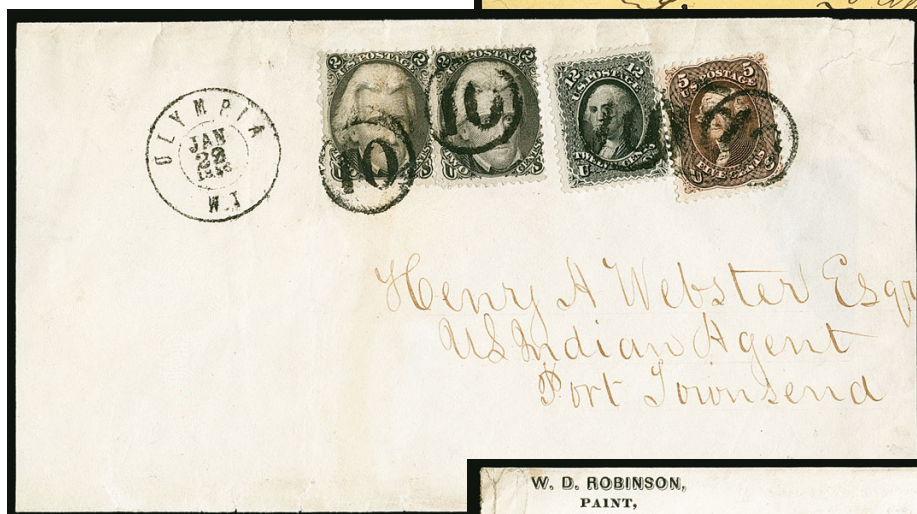 OLYMPIA
JAN
22
W.T
2 2
U.S. POSTAGE
10
2 2
U.S. POSTAGE
10
12 12
U.S. POSTAGE
TWELVE CENTS
5 5
U.S. POSTAGE
FIVE CENTS
Henry A Webster Esqr
US Indian Agent
Port Townsend
W. D. ROBINSON,
PAINT,